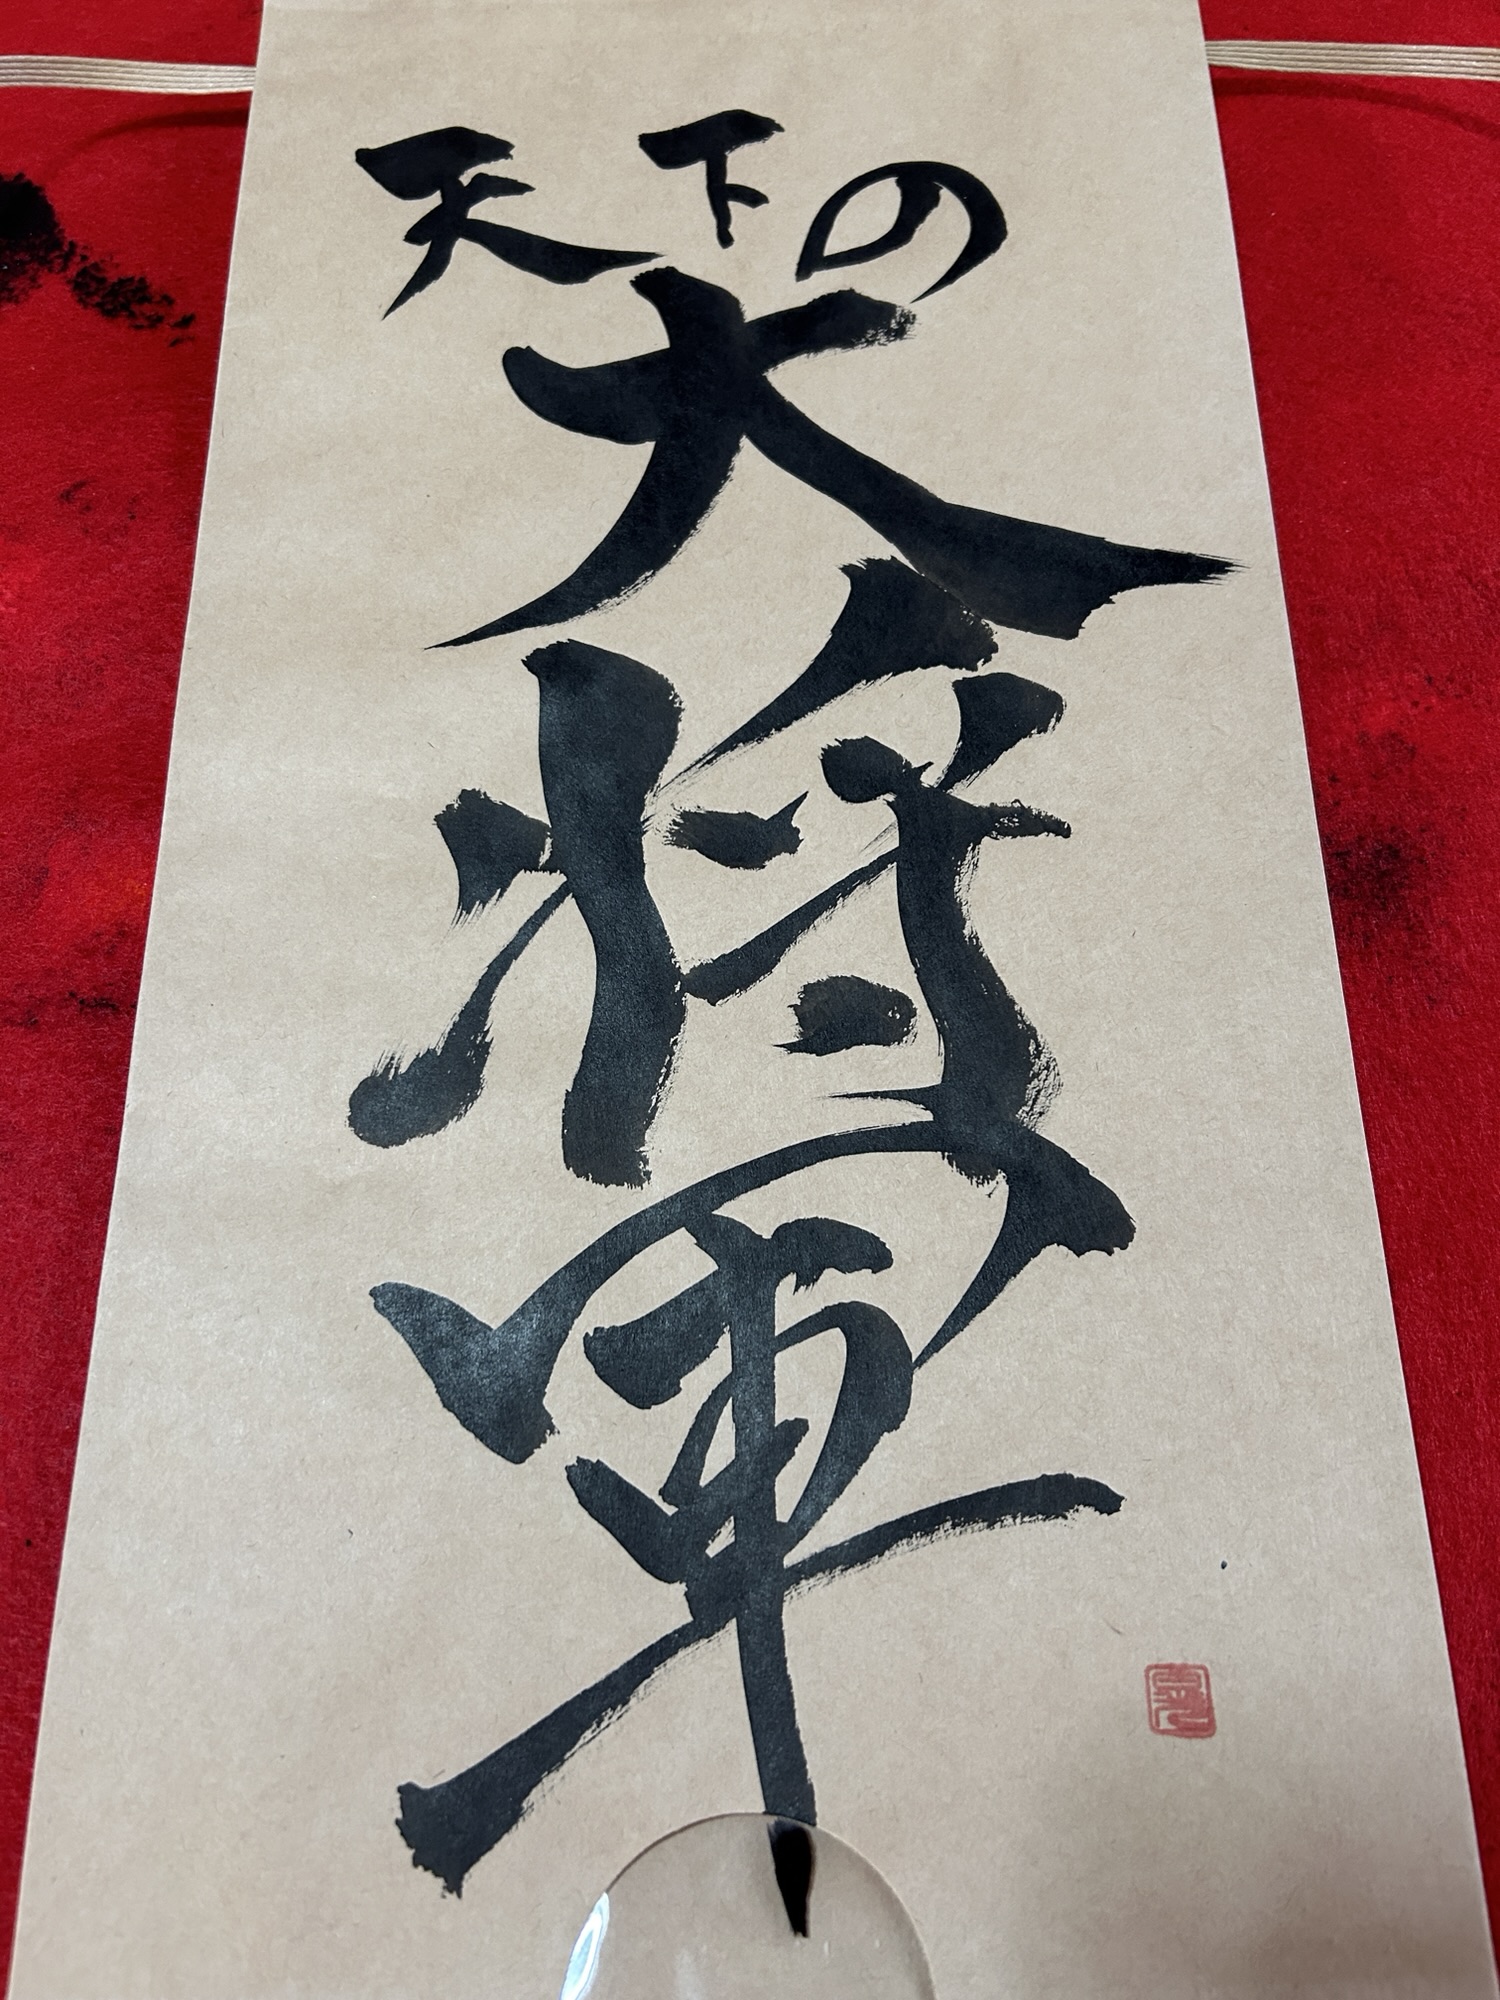 天下の
大
将
軍